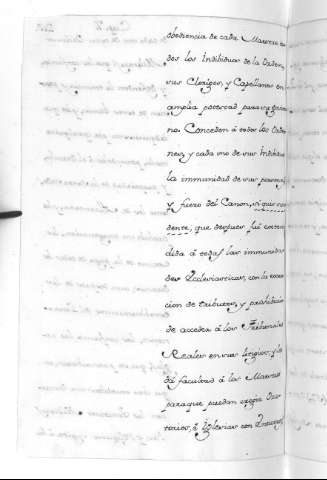 obediencia de cada Maestre to
dos los Individuos de la Orden,
sus Clerigos, y Capellanes con
amplia potestad para regir
no. Conceden á todas las Orde
nes, y cada uno de sus Individuos
la immunidad de sus personas,
y fuero del Canon, si quis sua
dente, que despues fué exten
dida á todas las immunida
des Eclesiasticas, con la exen
cion de tributos, y prohibicion
de acceder á los Tribunales
Reales en sus litigios; y les
dá facultad á los Maestres
para que puedan erigir Ora
torios, é Iglesias con